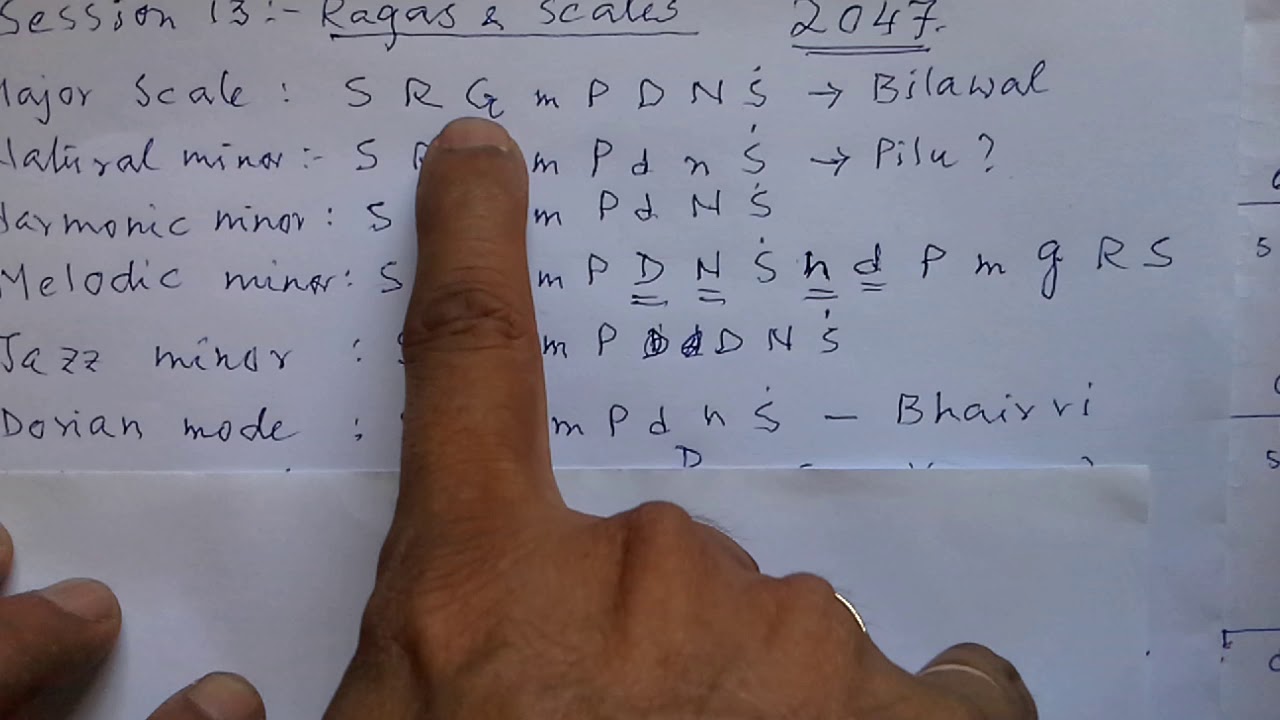 Session 13:- Ragas & Scales 2047.
Major Scale: S R G m P D N Ṡ → Bilawal
Natural minor:- S R m P d n Ṡ → Pilu?
Harmonic minor: S m P d N Ṡ
Melodic minor: S m P D N Ṡ n d P m g R S
Jazz minor : m P D N Ṡ
Dorian mode : m P d n Ṡ - Bhairvi
D